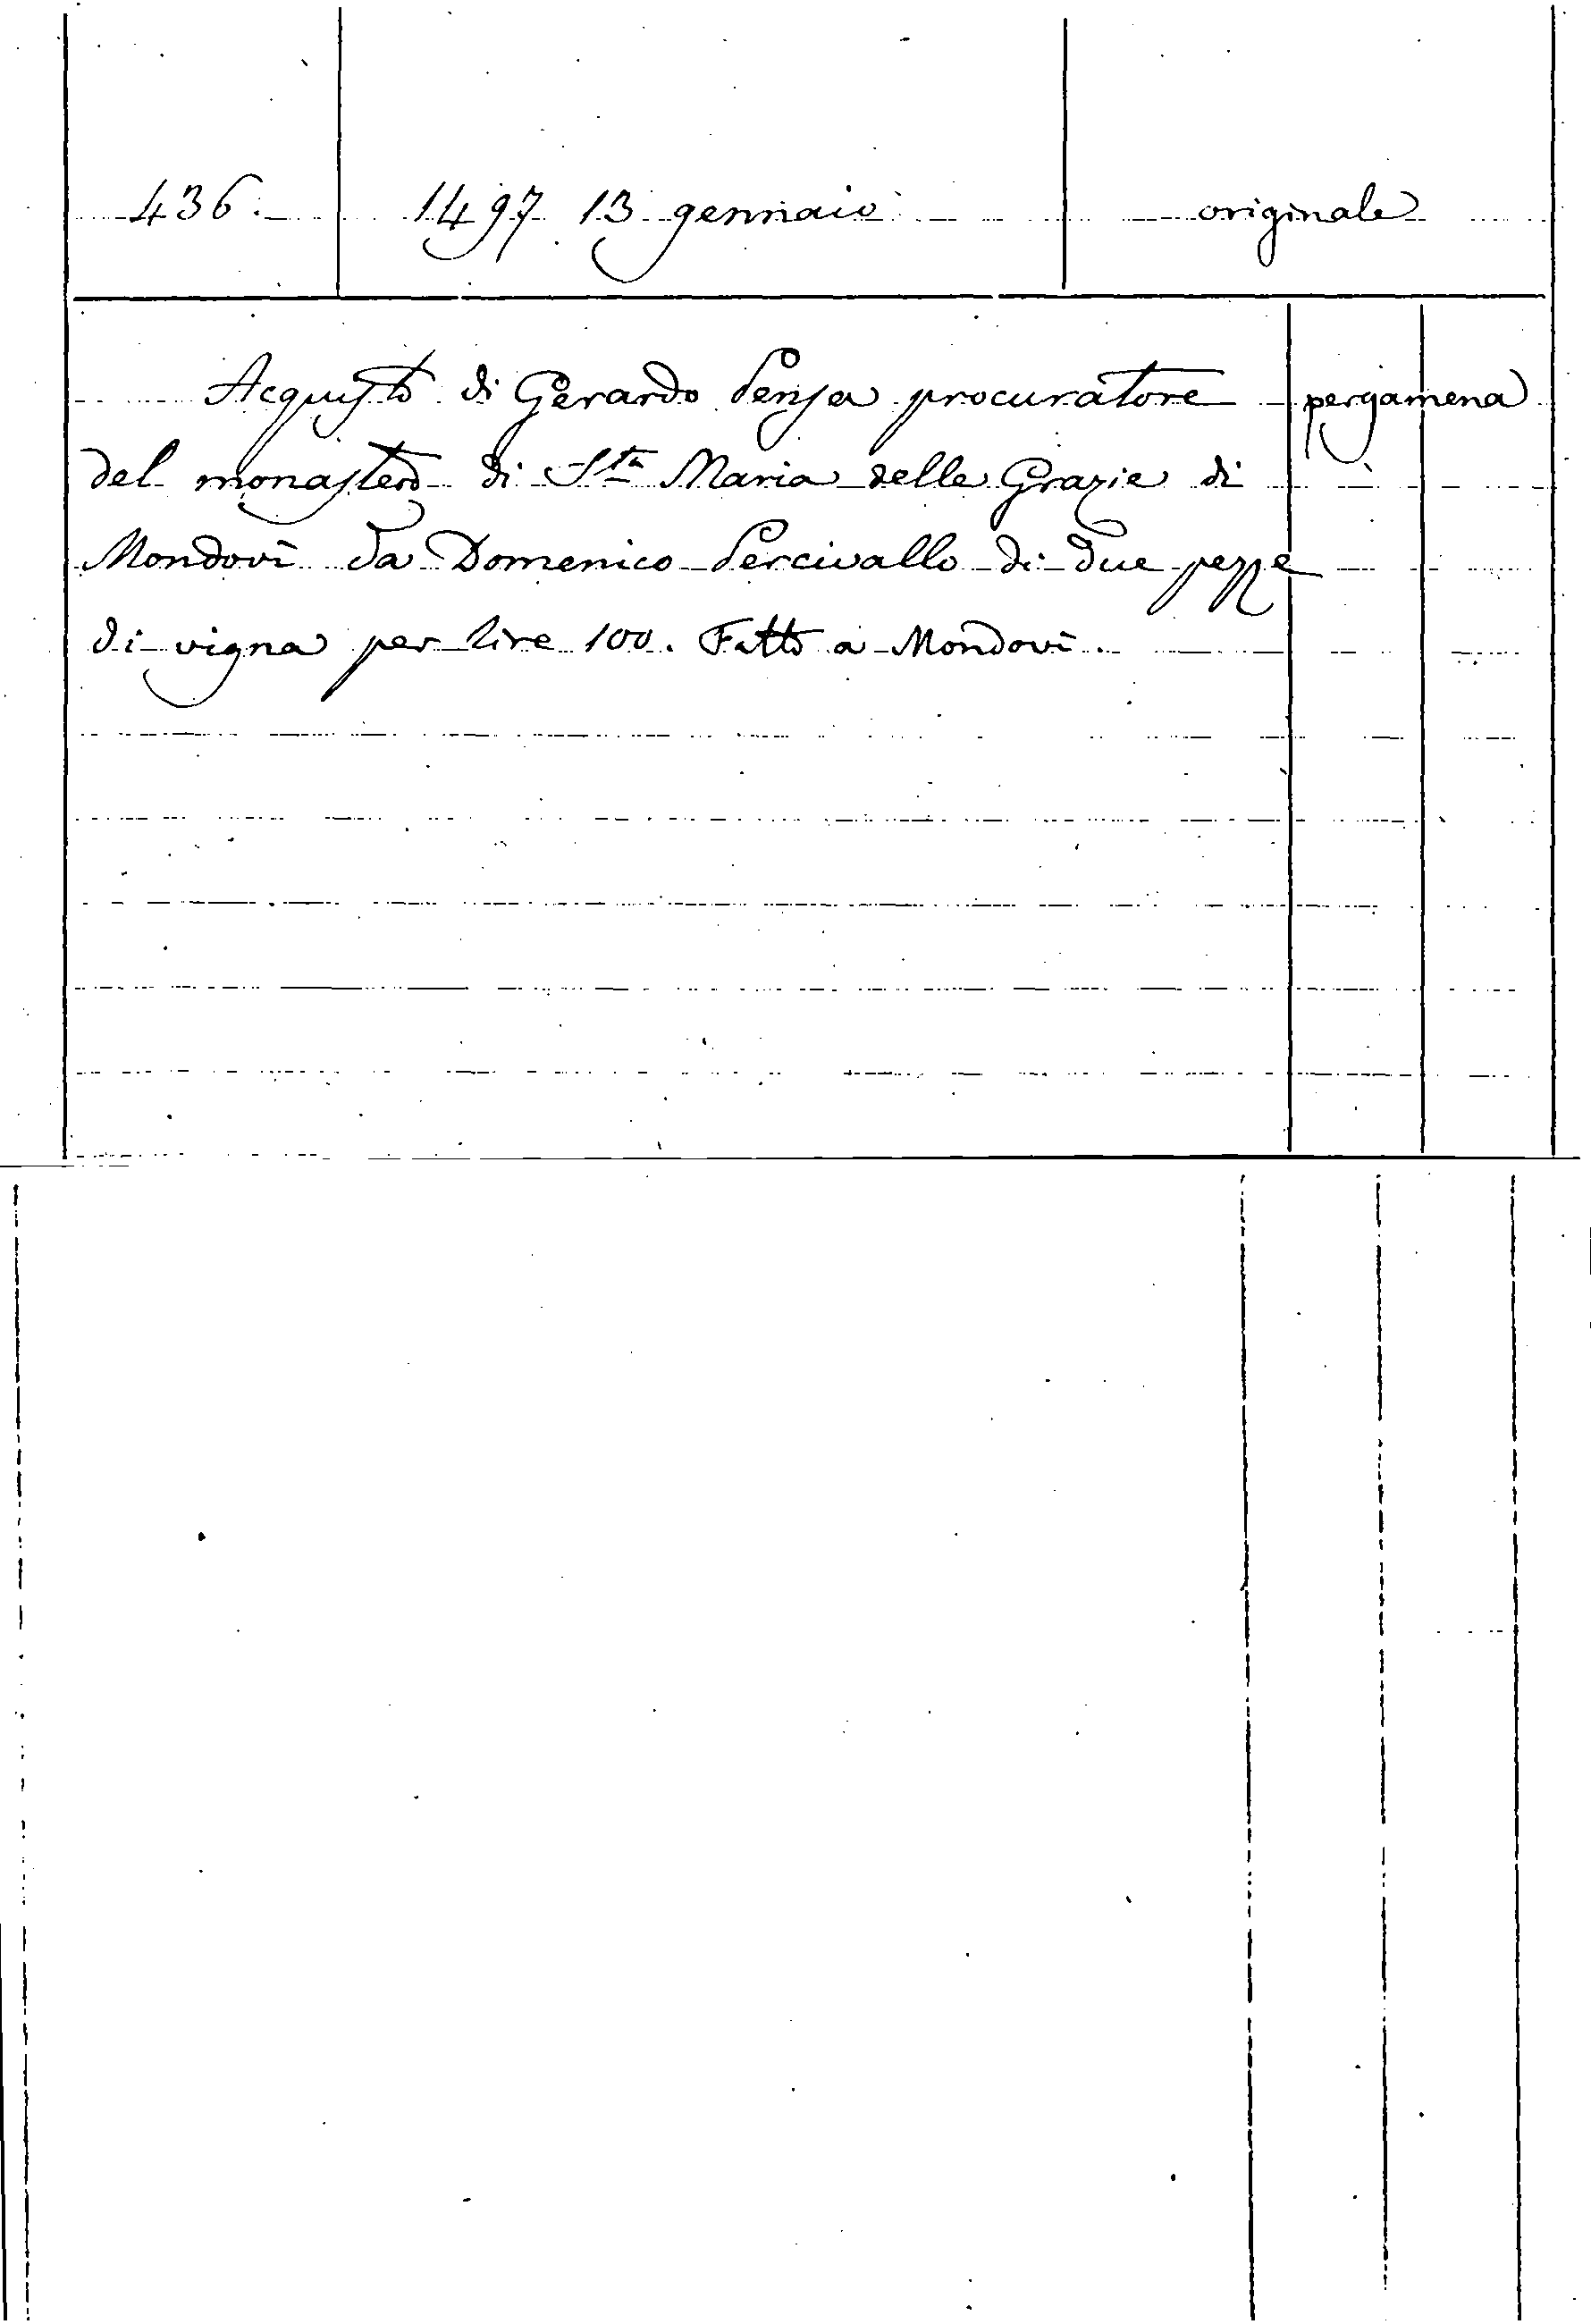 436.
1497 13 gennaio
originale
Acquisto di Gerardo Pensa procuratore
pergamena
del monastero di Sta Maria delle Grazie di
Mondovì da Domenico Percivallo di due pezze
di vigna per lire 100. Fatto a Mondovì.